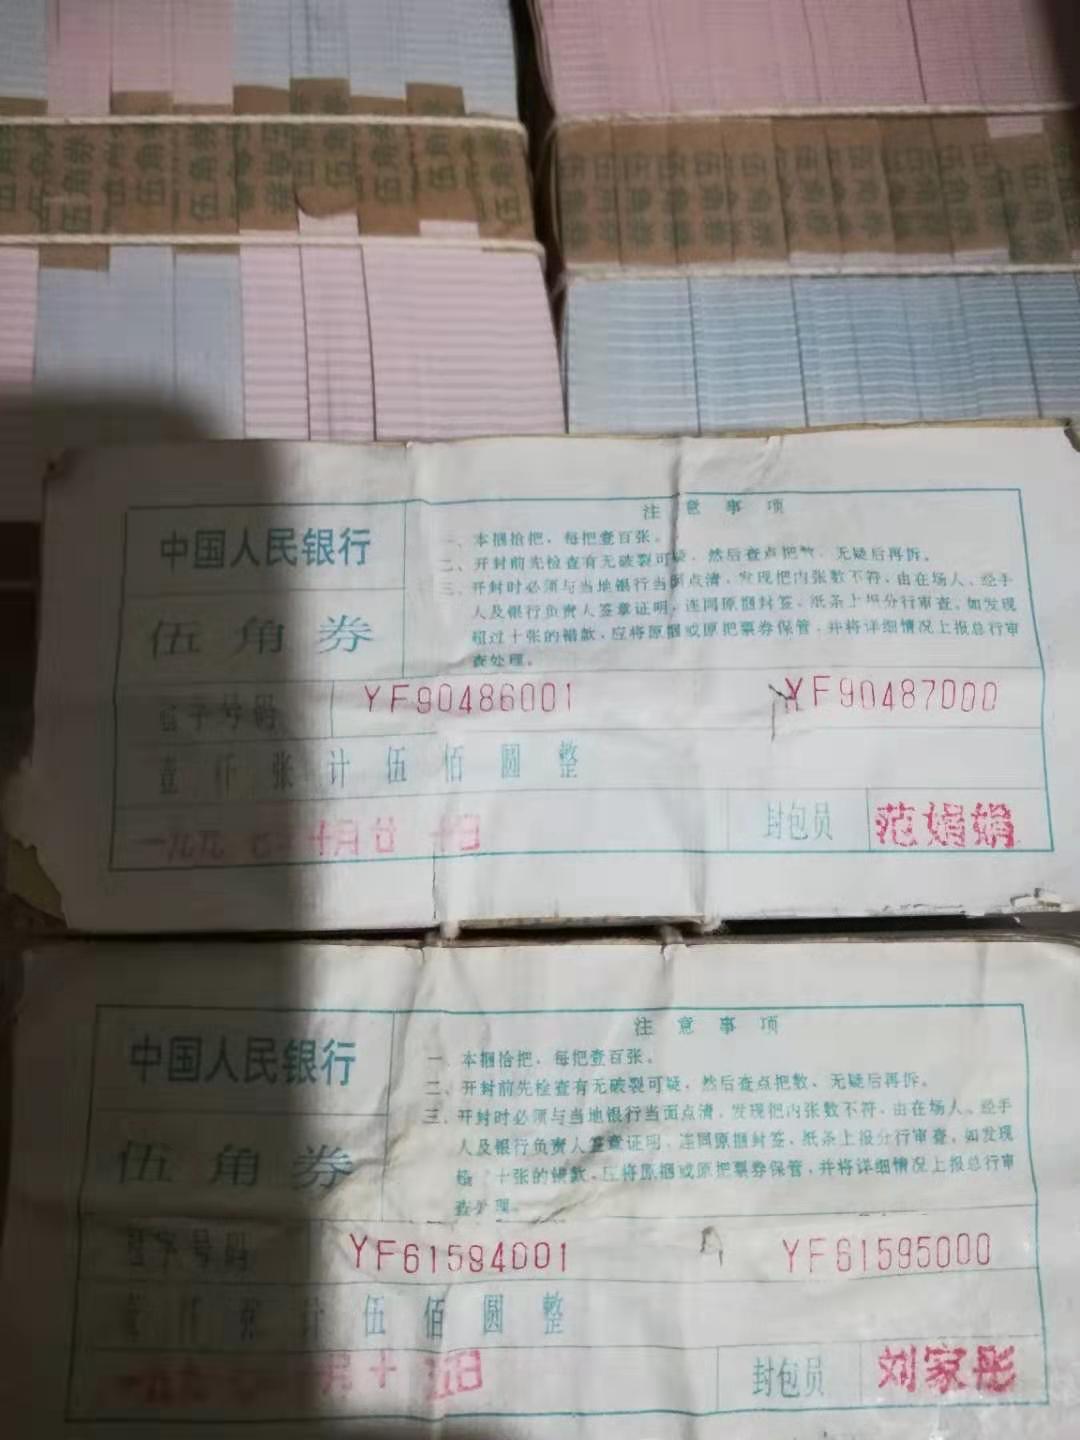 伍角券
伍角券
伍角券
伍角券
伍角券
伍角券
中国人民银行
伍角券
注意事项
一、本捆拾把，每把壹百张。
二、开封前先检查有无破裂可疑，然后查点把数，无疑后再拆。
三、开封时必须与当地银行当面点清，发现把内张数不符，由在场人、经手
人及银行负责人签章证明，连同原捆封签，纸条上报分行审查。如发现
超过十张的错款，应将原捆或原把票券保管，并将详细情况上报总行审
查处理。
冠字号码 YF90486001 YF90487000
壹仟张计伍佰圆整
一九九 十月廿 日 封包员 范娟娟
中国人民银行
伍角券
注意事项
一、本捆拾把，每把壹百张。
二、开封前先检查有无破裂可疑，然后查点把数，无疑后再拆。
三、开封时必须与当地银行当面点清，发现把内张数不符，由在场人、经手
人及银行负责人签章证明，连同原捆封签，纸条上报分行审查。如发现
十张的错款，应将原捆或原把票券保管，并将详细情况上报总行审
查处理。
冠字号码 YF61594001 YF61595000
壹仟张计伍佰圆整
月十五日 封包员 刘家彤